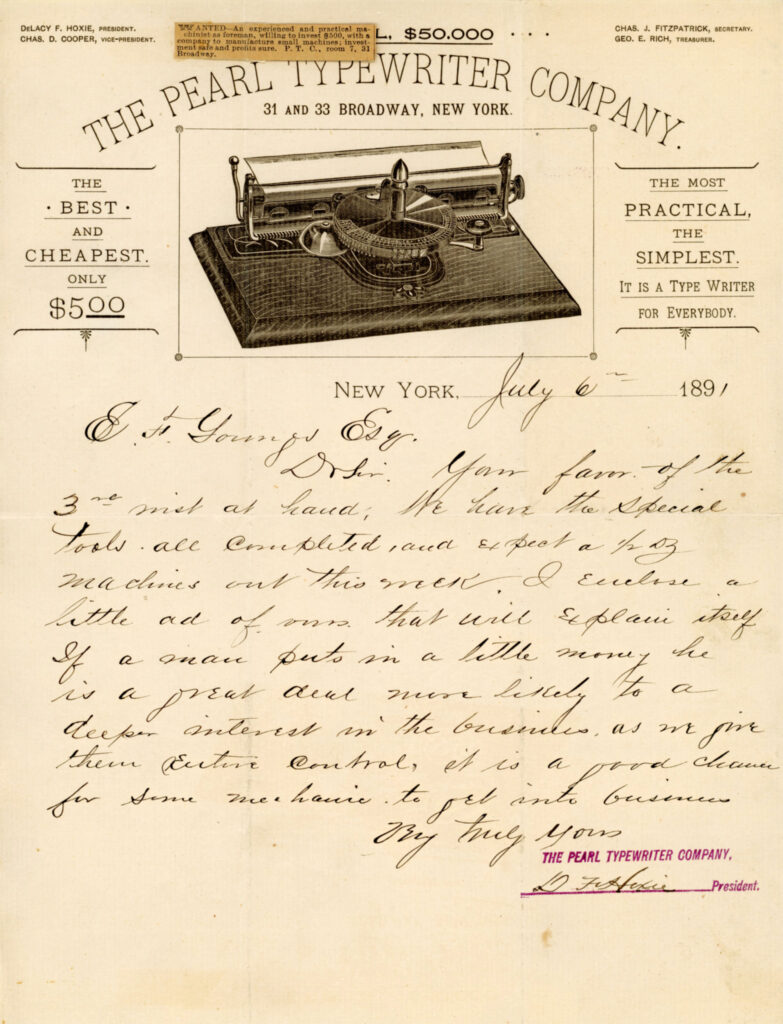 DeLACY F. HOXIE, PRESIDENT.
CHAS. D. COOPER, VICE-PRESIDENT.
WANTED—An experienced and practical ma-
chinist as foreman, willing to invest $500, with a
company to manufacture small machines; invest-
ment safe and profits sure. P. T. C., room 7, 31
Broadway.
L, $50.000
CHAS. J. FITZPATRICK, SECRETARY.
GEO. E. RICH, TREASURER.
THE PEARL TYPEWRITER COMPANY.
31 AND 33 BROADWAY, NEW YORK.
THE
· BEST ·
AND
CHEAPEST.
ONLY
$500
THE MOST
PRACTICAL,
THE
SIMPLEST.
IT IS A TYPE WRITER
FOR EVERYBODY.
NEW YORK, July 6th 1891
E. F. Youngs Esq.
Dr Sir. Your favor of the
3rd inst at hand, We have the special
tools all completed, and expect a 1/2 Dz
machines out this week. I enclose a
little ad of ours that will explain itself
If a man puts in a little money he
is a great deal more likely to a
deeper interest in the business, as we give
them entire control, it is a good chance
for some mechanic to get into business
Truly Yours
THE PEARL TYPEWRITER COMPANY,
D F Hoxie President.